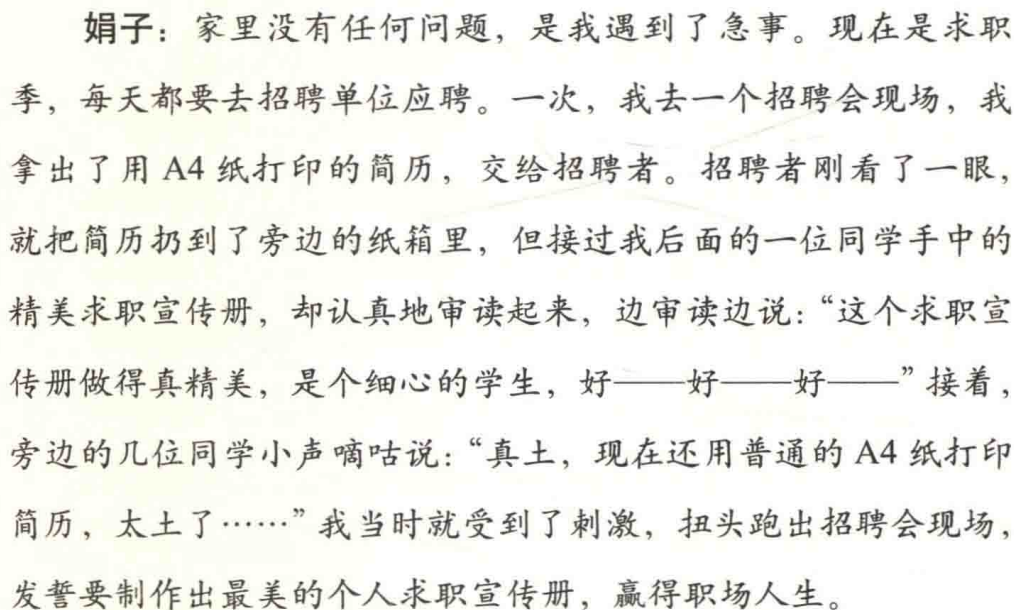 娟子：家里没有任何问题，是我遇到了急事。现在是求职
季，每天都要去招聘单位应聘。一次，我去一个招聘会现场，我
拿出了用 A4 纸打印的简历，交给招聘者。招聘者刚看了一眼，
就把简历扔到了旁边的纸箱里，但接过我后面的一位同学手中的
精美求职宣传册，却认真地审读起来，边审读边说：“这个求职宣
传册做得真精美，是个细心的学生，好——好——好——”接着，
旁边的几位同学小声嘀咕说：“真土，现在还用普通的 A4 纸打印
简历，太土了……”我当时就受到了刺激，扭头跑出招聘会现场，
发誓要制作出最美的个人求职宣传册，赢得职场人生。